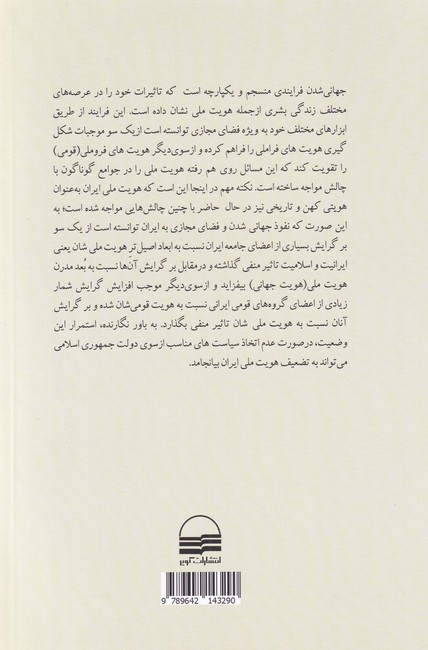 جهانی‌شدن فرایندی منسجم و یکپارچه است که تاثیرات خود را در عرصه‌های
مختلف زندگی بشری ازجمله هویت ملی نشان داده است. این فرایند از طریق
ابزارهای مختلف خود به ویژه فضای مجازی توانسته است ازیک سو موجبات شکل
گیری هویت های فراملی را فراهم کرده و ازسوی‌دیگر هویت های فروملی(قومی)
را تقویت کند که این مسائل روی هم رفته هویت ملی را در جوامع گوناگون با
چالش مواجه ساخته است. نکته مهم در اینجا این است که هویت ملی ایران به‌عنوان
هویتی کهن و تاریخی نیز در حال حاضر با چنین چالش‌هایی مواجه شده است؛ به
این صورت که نفوذ جهانی شدن و فضای مجازی به ایران توانسته است از یک سو
بر گرایش بسیاری از اعضای جامعه ایران نسبت به ابعاد اصیل‌تر هویت ملی شان یعنی
ایرانیت و اسلامیت تاثیر منفی گذاشته و درمقابل بر گرایش آن‌ها نسبت به بُعد مدرن
هویت ملی(هویت جهانی) بیفزاید و ازسوی‌دیگر موجب افزایش گرایش شمار
زیادی از اعضای گروه‌های قومی ایرانی نسبت به هویت قومی‌شان شده و بر گرایش
آنان نسبت به هویت ملی شان تاثیر منفی بگذارد. به باور نگارنده، استمرار این
وضعیت، درصورت عدم اتخاذ سیاست های مناسب ازسوی دولت جمهوری اسلامی
می‌تواند به تضعیف هویت ملی ایران بیانجامد.
انتشارات کویر
9 789642 143290